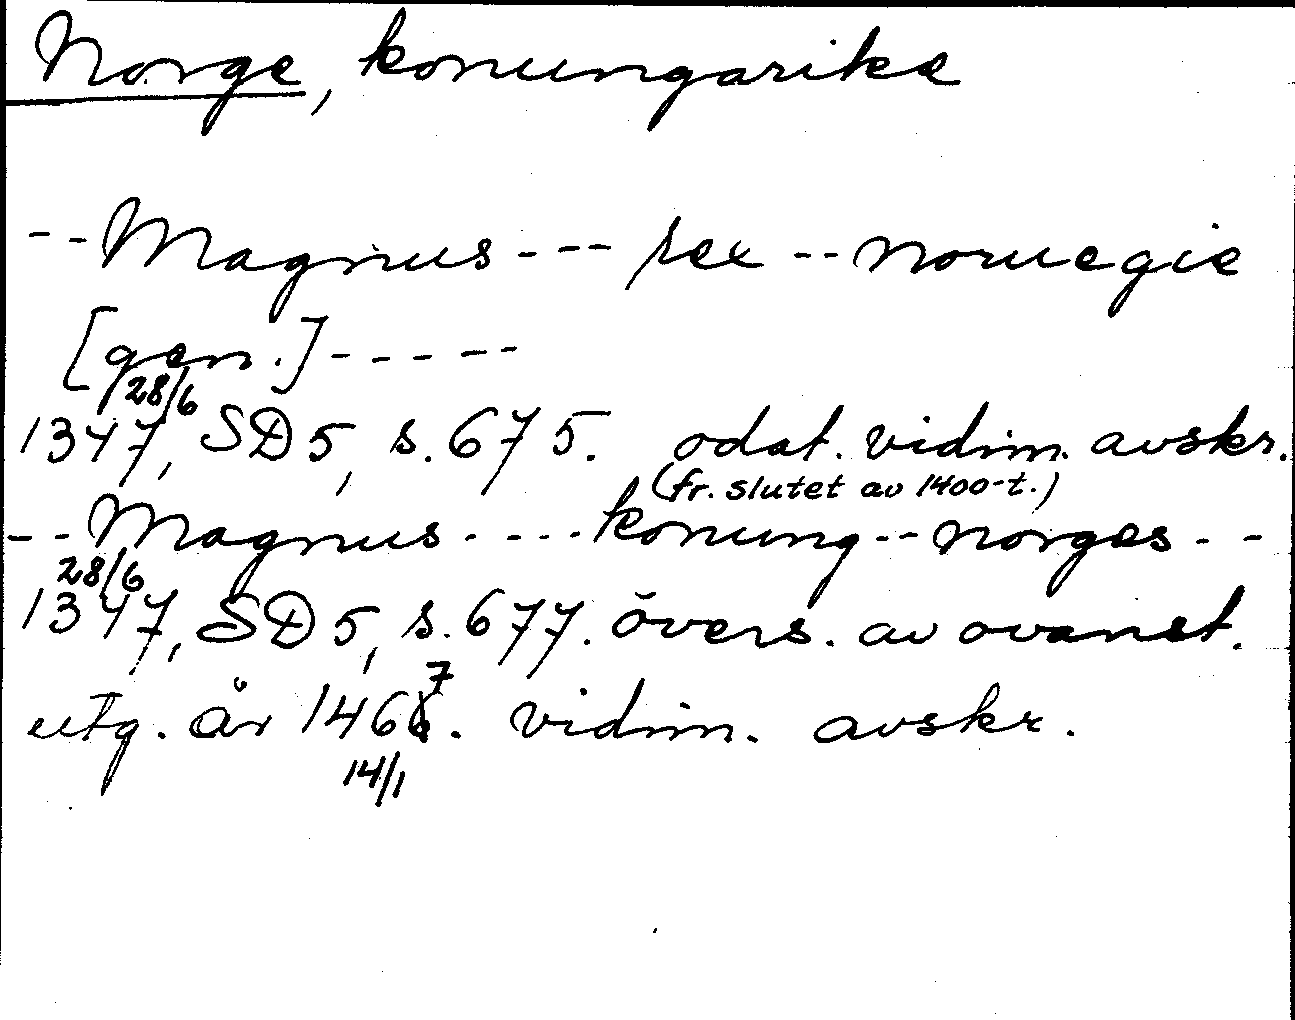 Norge, konungarike
-- Magnus --- rex -- noruegie
[gen.] -----
28/6
1347, SD 5, s. 675. odat. vidim. avskr.
(fr. slutet av 1400-t.)
-- Magnus ---- konung -- norges --
28/6
1347, SD 5, s. 677. övers. av ovanst.
7
utg. år 1466. vidim. avskr.
14/1